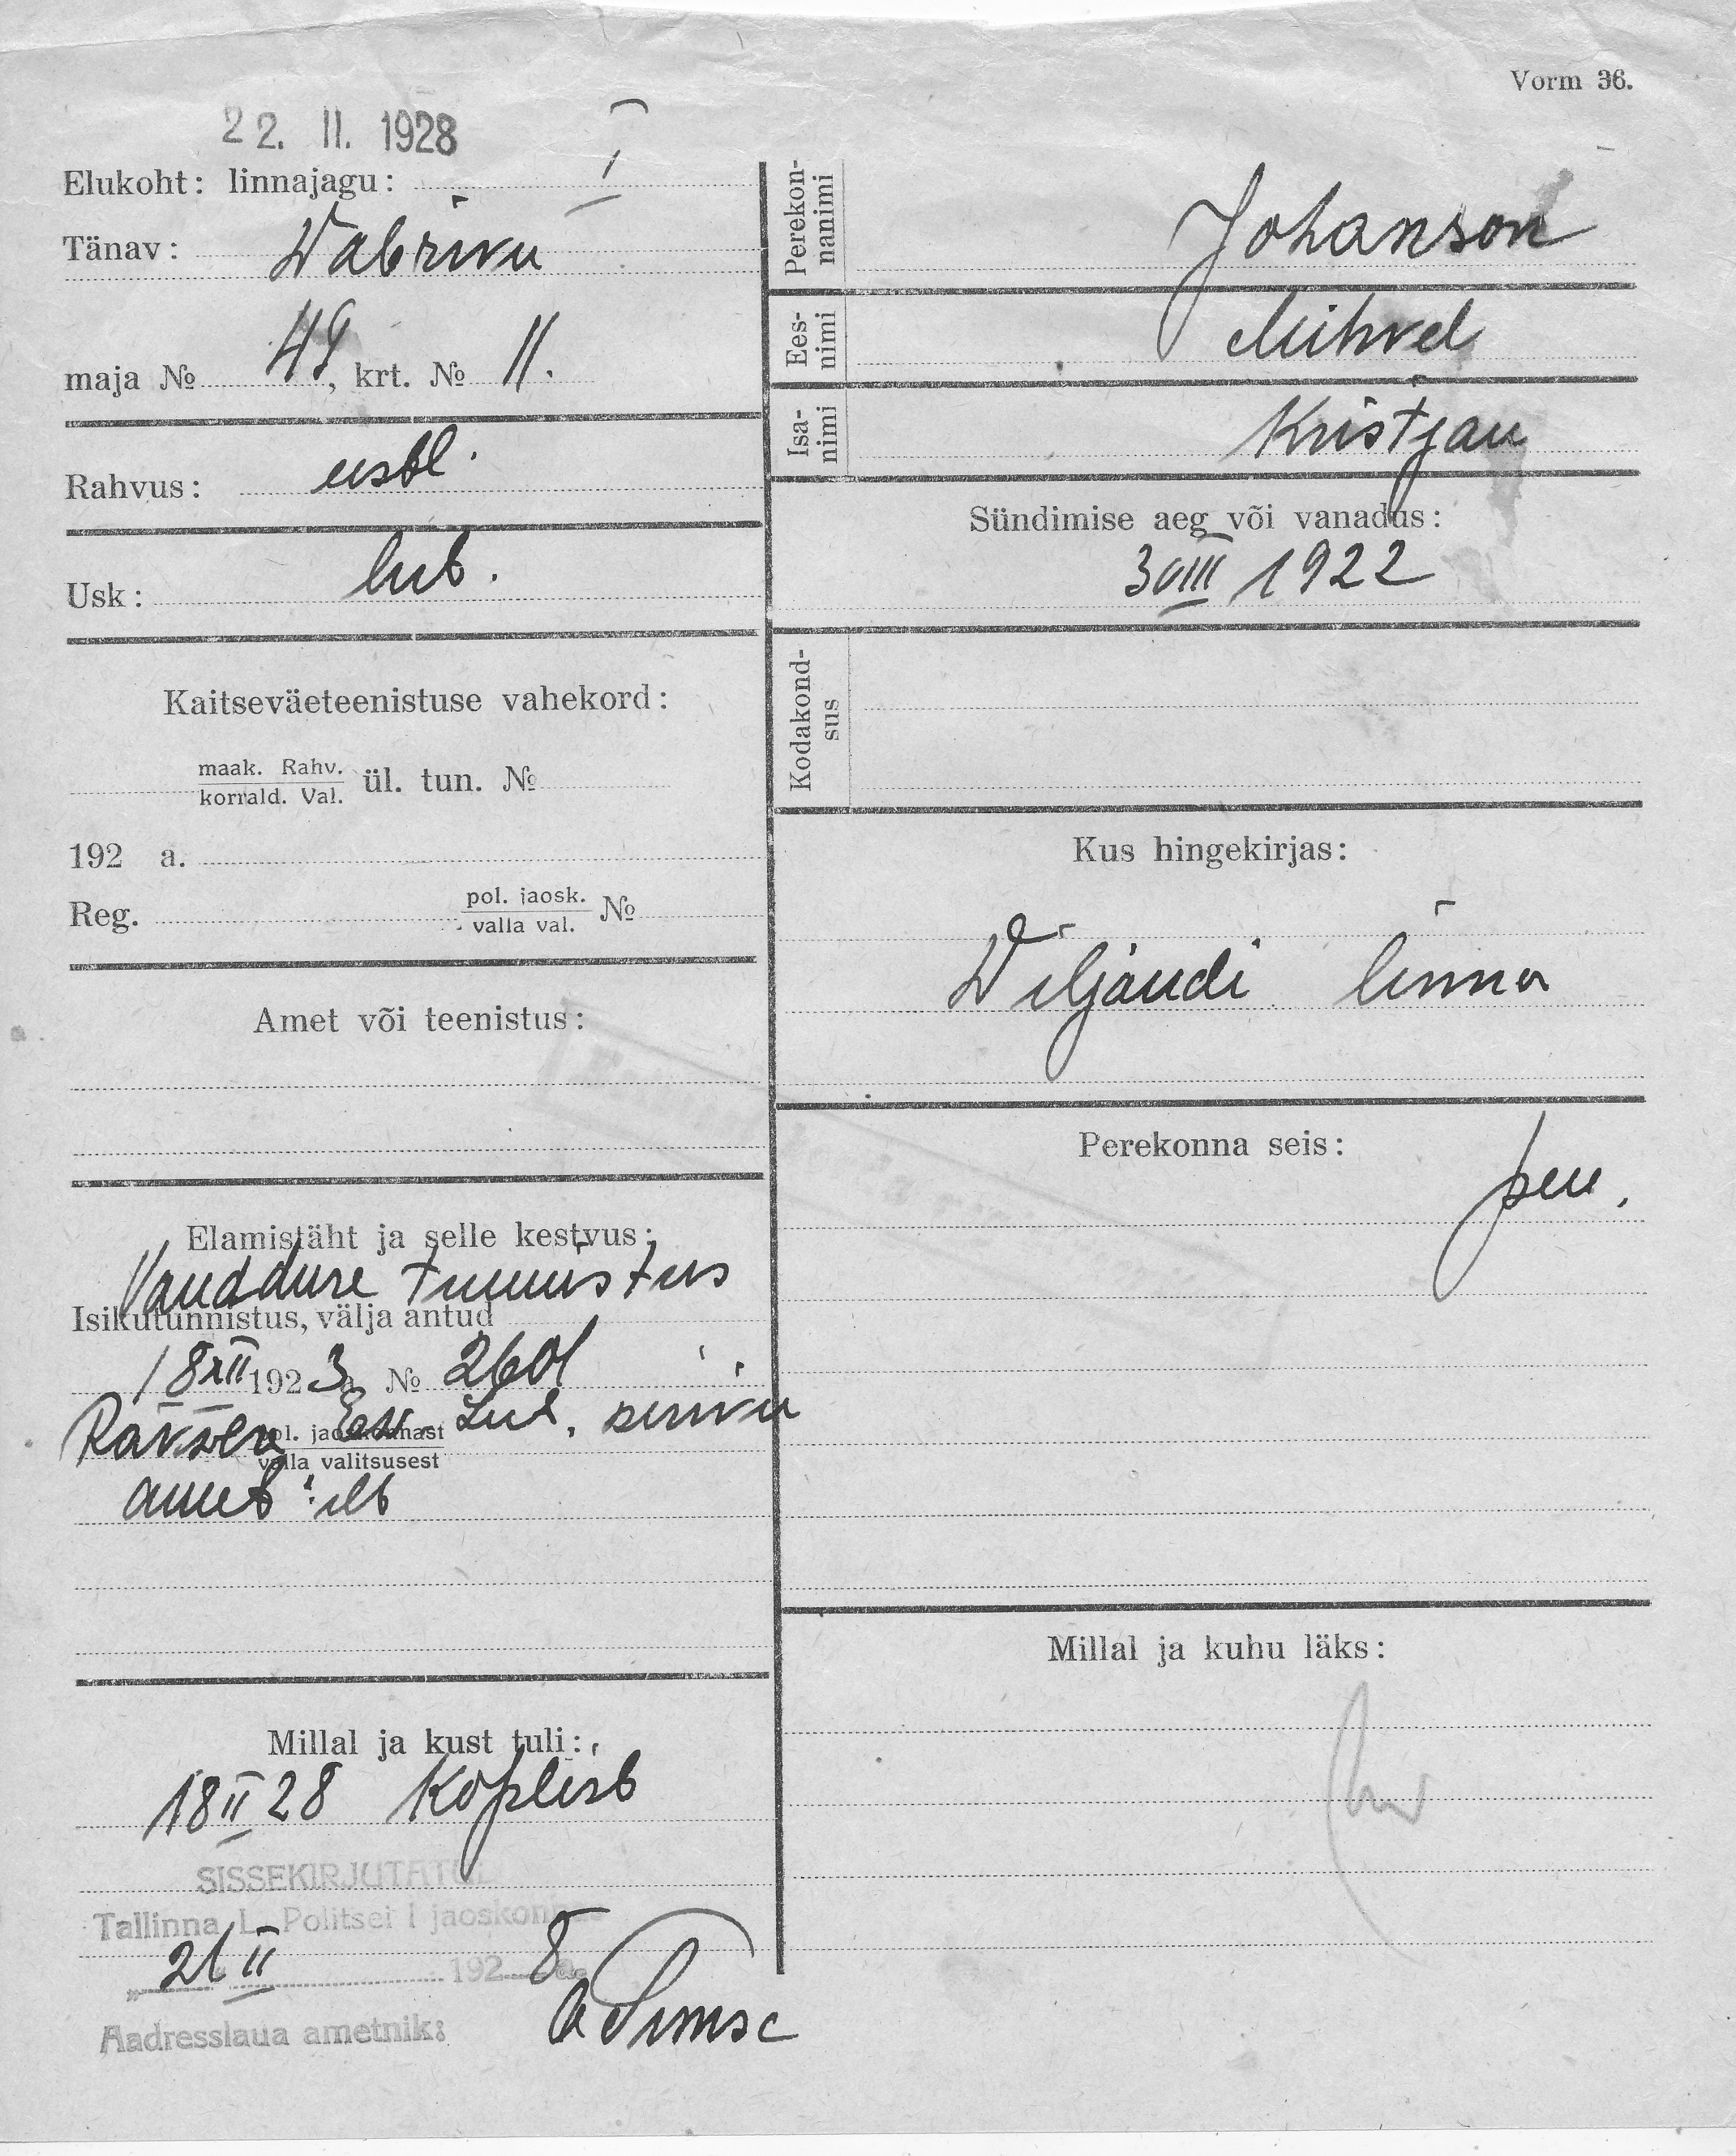 Vorm 36.
22. II. 1928
Elukoht: linnajagu: I
Tänav: Wabriku
maja № 49, krt. № 11.
Rahvus: eestl.
Usk: lut.
Kaitseväeteenistuse vahekord:
maak. Rahv.
korrald. Val. ül. tun. №
192 a.
Reg. pol. jaosk.
valla val. №
Amet või teenistus:
Elamistäht ja selle kestvus:
tunnistus
Isikutunnistus, välja antud
18 XII 1923 a. № 2601
pol. jaoskonnast
valla valitsusest
Millal ja kust tuli:
18 II 28 Koplist
SISSEKIRJUTATUD
Tallinna L. Politsei I jaoskonnas
„21 II 1928 a.
Aadresslaua ametnik:
Perekon-
nanimi Johanson
Ees-
nimi Mihkel
Isa-
nimi Kristjan
Sündimise aeg või vanadus:
30 III 1922
Kodakond-
sus
Kus hingekirjas:
Wiljandi linna
Perekonna seis:
Millal ja kuhu läks: